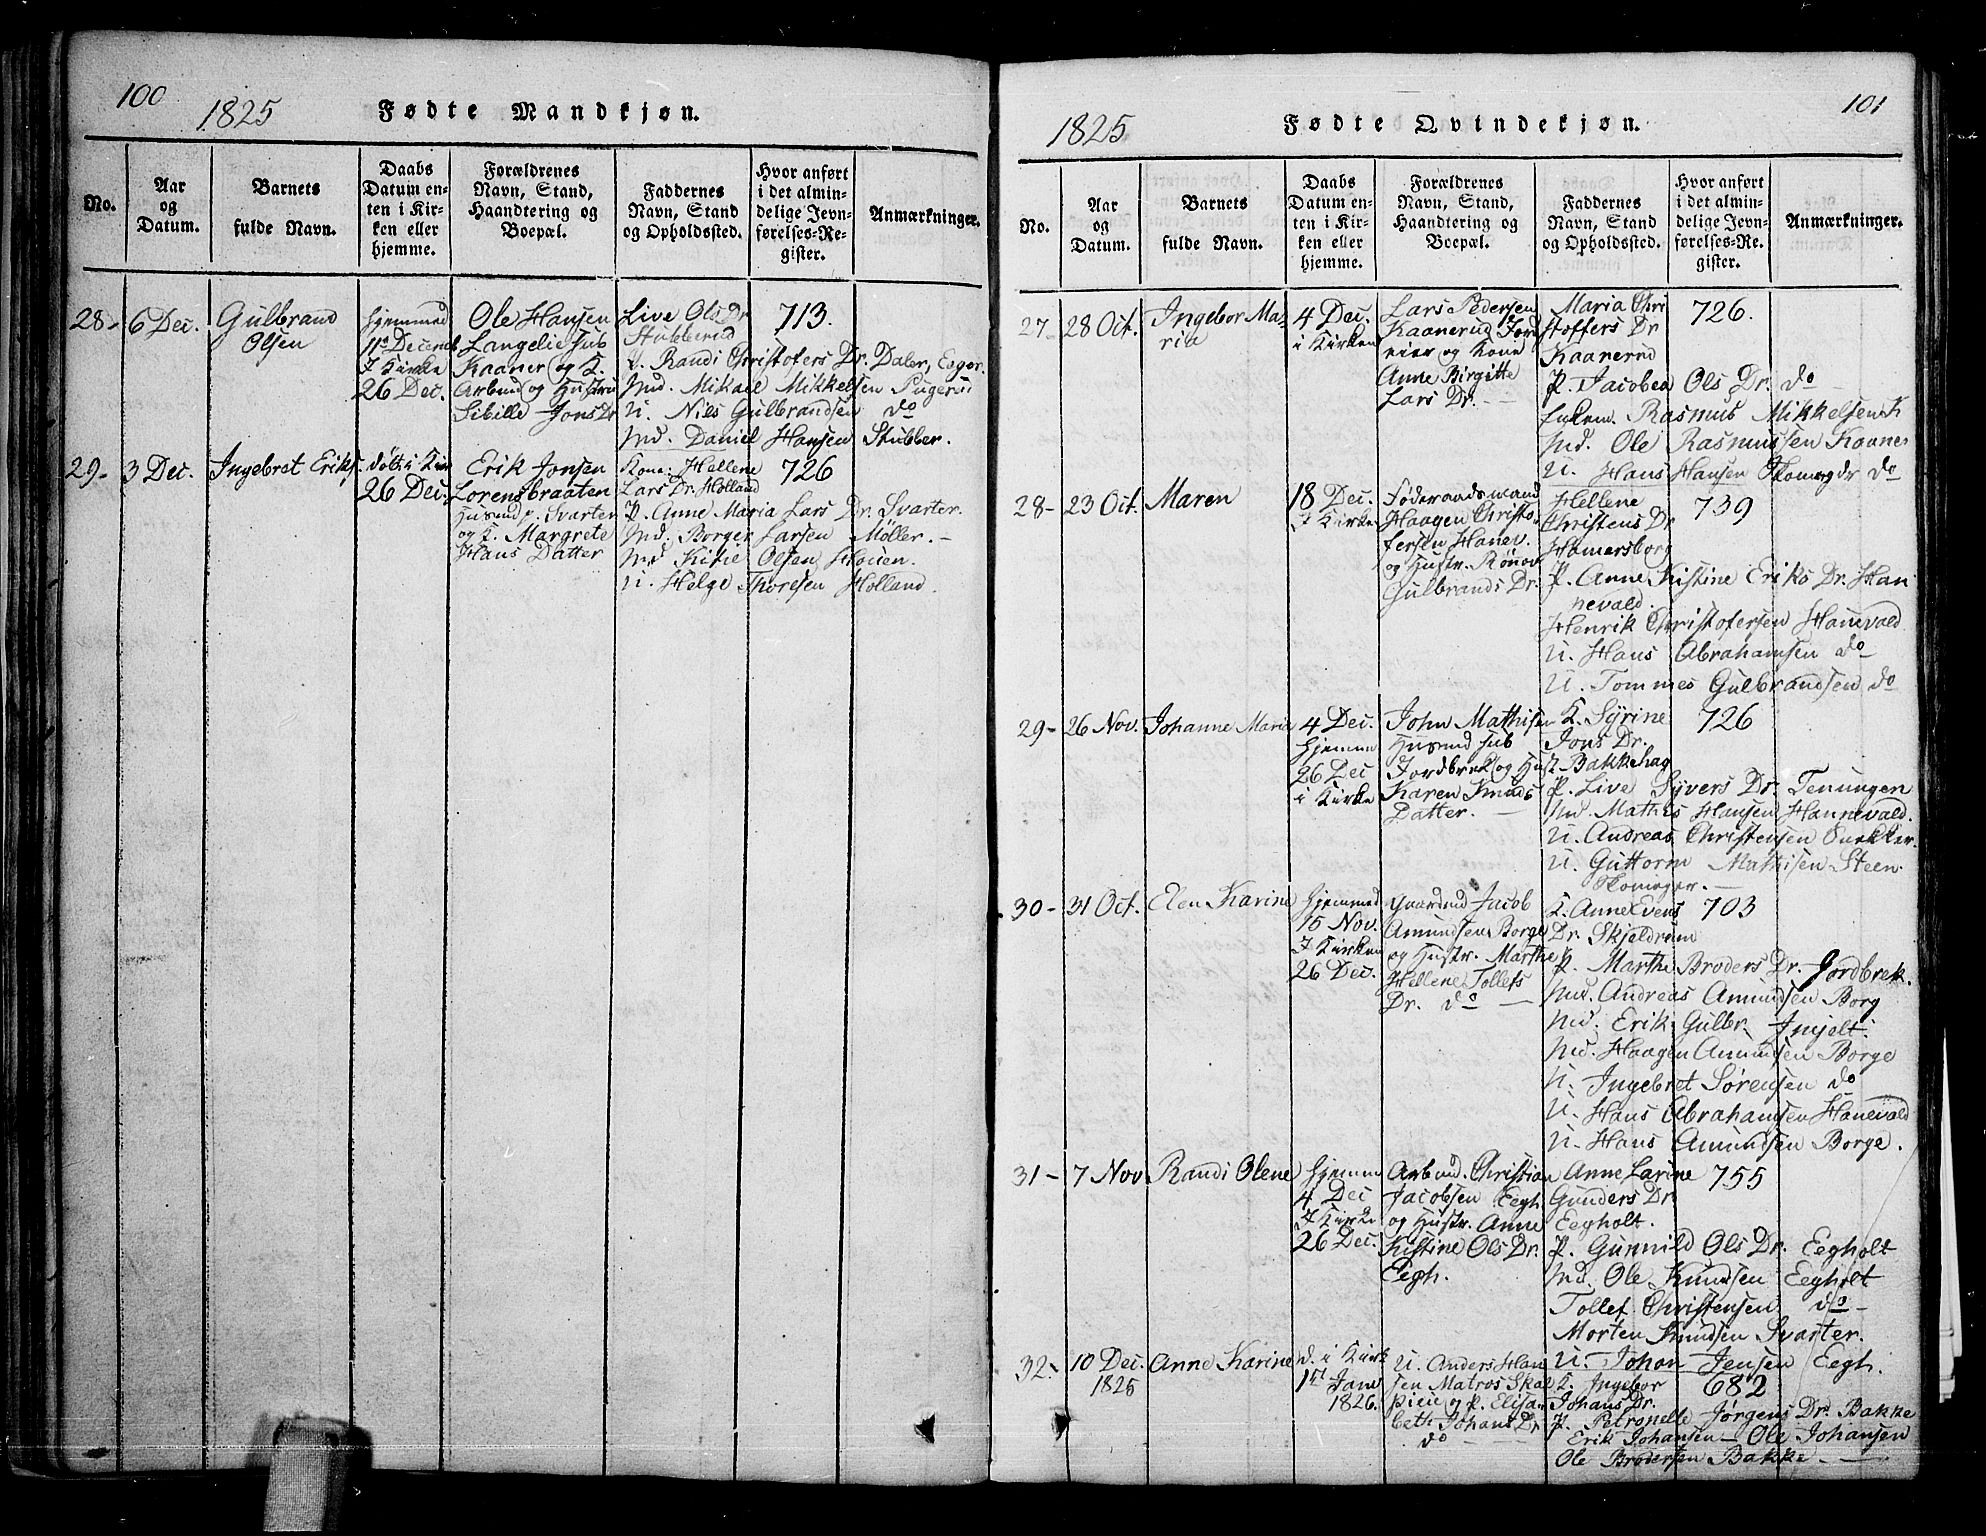 100
1825
Fødte Mandkjøn.
No.
Aar
og
Datum.
Barnets
fulde Navn.
Daabs
Datum en-
ten i Kir-
ken eller
hjemme.
Forældrenes
Navn, Stand,
Haandtering og
Boepæl.
Faddernes
Navn, Stand
og Opholdssted.
Hvor anført
i det almin-
delige Jevn-
førelses-Re-
gister.
Anmærkninger.
28-
6 Dec.
Gulbrand
Olsen
hjemmed
11 Decemb
I Kirke
26 Dec.
Ole Hansen
Langelie sub
Kaaner og K.
Arbmd og Hustrue
Sibille Jons Dr
Live Ols Dr
Stubberud
P. Randi Christofers Dr. Daler, Eger.
Md. Mikael Mikkelsen Pugerud
U. Niels Gulbrandsen do
Md. Daniel Hansen Stubber.
713.
29-
3 Dec.
Ingebret Eriks.
døbt i Kir
26 Dec.
Erik Jonsen
Lorensbraaten
Husmd p. Svarter
og K. Margrete
Hans Datter
Kone Hellene
Lars Dr Holland
P. Anne Maria Lars Dr. Svarter.
Md. Borger Larsen Møller.-
Md Kitie Olsen Houen.
U. Helge Thoresen Holland.
726
101
1825
Fødte Qvindekjøn.
No.
Aar
og
Datum.
Barnets
fulde Navn.
Daabs
Datum en-
ten i Kir-
ken eller
hjemme.
Forældrenes
Navn, Stand,
Haandtering og
Boepæl.
Faddernes
Navn, Stand
og Opholdssted.
Hvor anført
i det almin-
delige Jevn-
førelses-Re-
gister.
Anmærkninger.
27-
28 Oct.
Ingebor Ma-
ria
4 Dec.
i Kirken
Lars Pedersen
Kaanerud Jord
eier og Kone
Anne Birgitte
Lars Dr.
Maria Chri
stoffers Dr
Kaanerud
P. Jacobea Ols Dr. do
Rasmus Mikkelsen K
Md. Ole Rasmussen Kaaner
U. Hans Hansen do
726.
28-
23 Oct.
Maren
18 Dec.
I Kirke
Føderaadsmand
Haagen Christo-
fersen Hanev.
og Hustr. Rønov
Gulbrands Dr.
Hellene
Christens Dr
Hamersborg
P. Anne Kistine Eriks Dr. Han
nevald.
Henrik Christofersen Hanevald
U. Hans Abrahamsen do
U. Tommes Gulbrandsen do
739
29-
26 Nov.
Johanne Maria
4 Dec.
hjemme
26 Dec
i Kirke
John Mathisen
Husmd sub
Jordbrek og Hust-
Karen Knuds
Datter.
K. Syrine
Jons Dr.
Bakkehag
P. Live Syvers Dr. Tenungen
Md. Mathis Hansen Hannevald.
U. Andreas Christensen
U. Guttorm Mathisen Steen
726
30-
31 Oct.
Elen Karine
hjemmed
15 Nov.
I Kirken
26 Dec.
Gaardmd Jacob
Amundsen Borge
og Hustr. Marthe
Hellene Tollefs
Dr. do
K. Anne Evens
Dr. Skjeldrem
P. Marthe Broders Dr. Jordbrek.
Md. Andreas Amundsen Borg
Md. Erik Gulbr.
Md. Haagen Amundsen Borge
U. Ingebret Sørensen do
U. Hans Abrahamsen Hanevald
U. Hans Amundsen Borge.
703
31-
7 Nov
Randi Olene
hjemme
4 Dec
I Kirke
26 Dec.
Arbmd. Christian
Jacobsen Eegh
og Hustr. Anne
Kistine Ols Dr.
Eegh.
Anne Larine
Gunders Dr
Eegholt.
P. Gunnild Ols Dr. Eegholt
Md. Ole Knudsen Eegholt
Tollef Christensen do
Morten Knudsen Svarter.
U. Johan Jensen Eegh.
755
32-
10 Dec.
1825
Anne Karine
d. i Kirk
1st Janu
1826.
U. Anders Han
sen Matros Skal
pien og P. Elisa-
beth Johans Dr
do
K. Ingebor
Johans Dr.
P. Petronelle Jørgens Dr. Bakke
Erik Johansen - Ole Johansen
Ole Brodersen Bakke
682